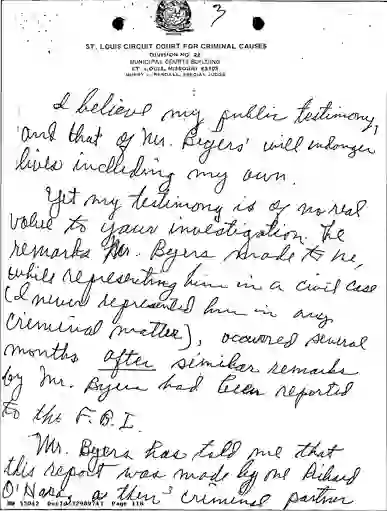 3
ST. LOUIS CIRCUIT COURT FOR CRIMINAL CAUSES
DIVISION NO. 22
MUNICIPAL COURTS BUILDING
ST. LOUIS, MISSOURI 63103
SPECIAL JUDGE
I believe my public testimony,
and that of Mr. Byers' will endanger
lives including my own.
Yet my testimony is of no real
value to your investigation. The
remarks Mr. Byers made to me,
while representing him in a civil case
(I never represented him in any
criminal matter), occurred several
months after similar remarks
by Mr. Byers had been reported
to the F.B.I.
Mr. Byers has told me that
this report was made by one Richard
O'Hara, a then criminal partner
Page 116